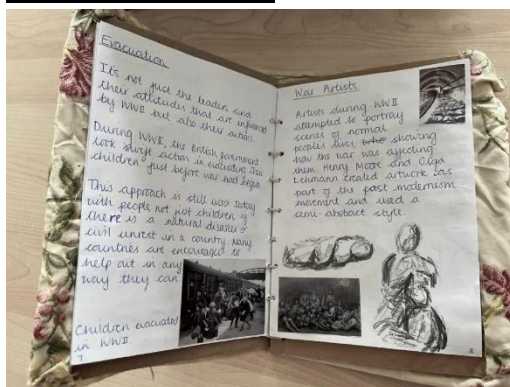 Evacuation
It's not just the leaders and
their attitudes that are influenced
by WWII but also their actions.
During WWII, the British government
took swift action in evacuating
children just before war had begun.
This approach is still used today
with people not just children if
there is a natural disaster or
civil unrest in a country. Many
countries are encouraged to
help out in any
way they can.
Children evacuated
in WWII.
7
War Artists
Artists during WWII
attempted to portray
scenes of normal
people's lives, showing
how the war was affecting
them. Henry Moore and Olga
Lehmann created artwork as
part of the post modernism
movement and used a
semi-abstract style.
8